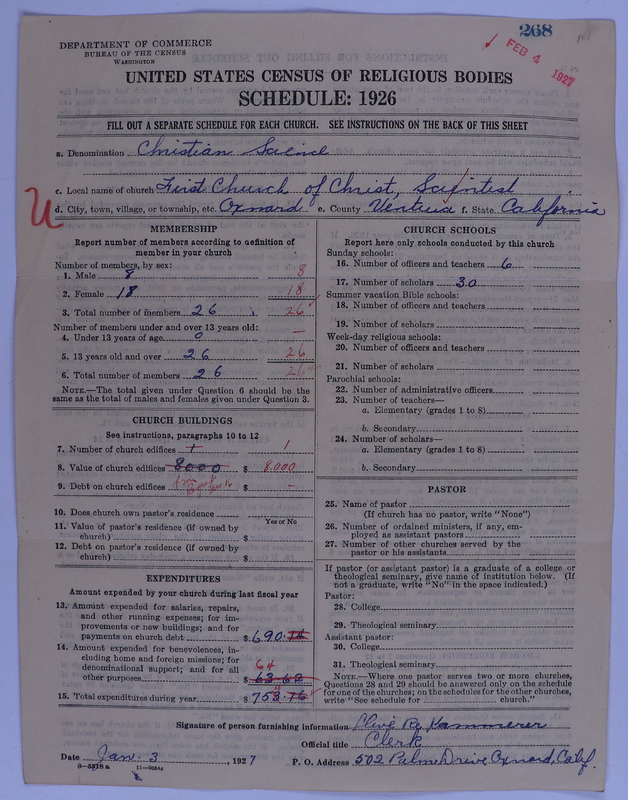 268
FEB 4 1927
DEPARTMENT OF COMMERCE
BUREAU OF THE CENSUS
WASHINGTON
UNITED STATES CENSUS OF RELIGIOUS BODIES
SCHEDULE: 1926
FILL OUT A SEPARATE SCHEDULE FOR EACH CHURCH. SEE INSTRUCTIONS ON THE BACK OF THIS SHEET
a. Denomination Christian Science
c. Local name of church First Church of Christ, Scientist
d. City, town, village, or township, etc. Oxnard e. County Ventura f. State California
MEMBERSHIP
Report number of members according to definition of
member in your church
Number of members, by sex:
1. Male 8 8
2. Female 18 18
3. Total number of members 26 26
Number of members under and over 13 years old:
4. Under 13 years of age 0 —
5. 13 years old and over 26 26
6. Total number of members 26 26
NOTE.—The total given under Question 6 should be
same as the total of males and females given under Question 3.
CHURCH BUILDINGS
See instructions, paragraphs 10 to 12
7. Number of church edifices 1 1
8. Value of church edifices 8000 $ 8,000
9. Debt on church edifices $ -
10. Does church own pastor's residence
Yes or No
11. Value of pastor's residence (if owned by
church) $
12. Debt on pastor's residence (if owned by
church) $
EXPENDITURES
Amount expended by your church during last fiscal year
13. Amount expended for salaries, repairs,
and other running expenses; for im-
provements or new buildings; and for
payments on church debt $ 690.14
14. Amount expended for benevolences, in-
cluding home and foreign missions; for
denominational support; and for all
other purposes 64 $ 63.62
15. Total expenditures during year $ 753.76
CHURCH SCHOOLS
Report here only schools conducted by this church
Sunday schools:
16. Number of officers and teachers 6
17. Number of scholars 30
Summer vacation Bible schools:
18. Number of officers and teachers
19. Number of scholars
Week-day religious schools:
20. Number of officers and teachers
21. Number of scholars
Parochial schools:
22. Number of administrative officers
23. Number of teachers—
a. Elementary (grades 1 to 8)
b. Secondary
24. Number of scholars—
a. Elementary (grades 1 to 8)
b. Secondary
PASTOR
25. Name of pastor
(If church has no pastor, write "None")
26. Number of ordained ministers, if any, em-
ployed as assistant pastors
27. Number of other churches served by the
pastor or his assistants
If pastor (or assistant pastor) is a graduate of a college or
theological seminary, give name of institution below. (If
not a graduate, write "No" in the space indicated.)
Pastor:
28. College
29. Theological seminary
Assistant pastor:
30. College
31. Theological seminary
NOTE.—Where one pastor serves two or more churches,
Questions 28 and 29 should be answered only on the schedule
for one of the churches; on the schedules for the other churches,
write "See schedule for church."
Signature of person furnishing information Olive R. Kammerer
Official title Clerk
Date Jan. 3, 1927 P. O. Address 502 Palm Drive Oxnard, Calif.
8—5518a 11—9054